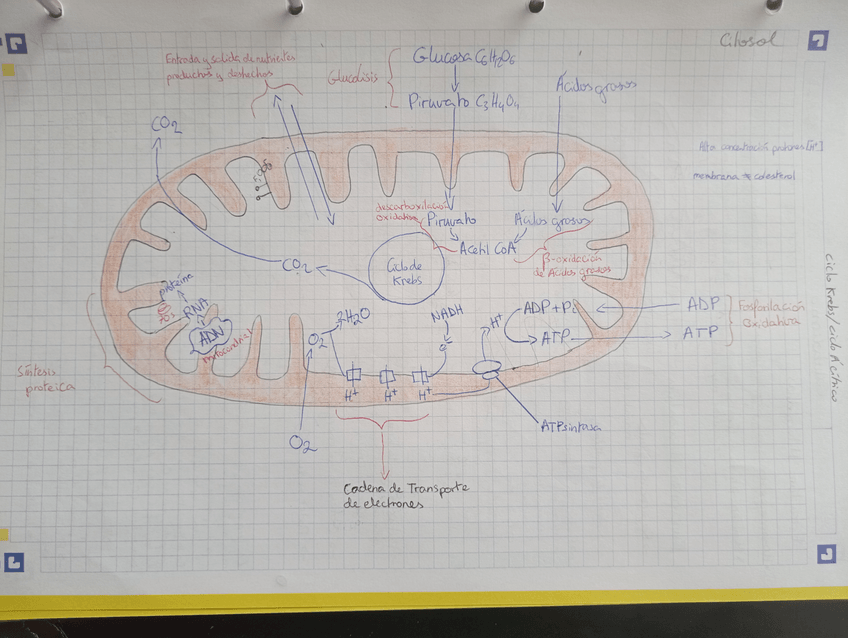 Citosol
Entrada y salida de nutrientes
productos y deshechos
Glucolisis
Glucosa C6H2O6
Piruvato C3H4O4
Ácidos grasos
CO2
Alta concentración protones [H+]
membrana ≈ colesterol
descarboxilación
oxidativa
Piruvato
Ácidos grasos
Acetil CoA
β-oxidación
de Ácidos grasos
Ciclo de
Krebs
CO2
proteína
RNA
70s
ADN
mitocondrial
Síntesis
proteica
O2
2H2O
NADH
e-
H+
ADP + Pi
ATP
ADP
ATP
Fosforilación
Oxidativa
H+
H+
H+
ATPsintasa
O2
Cadena de Transporte
de electrones
Ciclo Krebs/ciclo Á cítrico